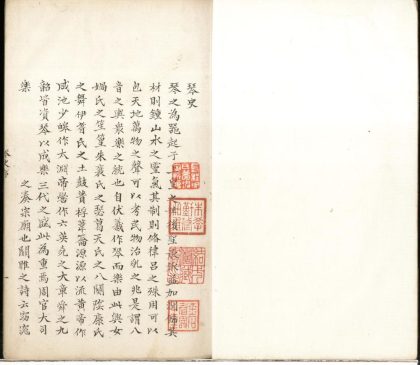 琴史
琴之為器起于上皇之世後聖承承益加潤飾其
材則鍾山水之靈氣其制則備律呂之殊用可以
包天地萬物之聲可以考民物治亂之兆是謂八
音之輿衆樂之統也自伏羲作琴而樂由此興女
媧氏之笙簧朱襄氏之瑟葛天氏之八闋陰康氏
之舞伊耆氏之土鼓蕢桴葦籥源源以流黃帝作
咸池少皞作大淵帝嚳作六英堯之大章舜之九
韶皆資琴以成樂三代之盛此為重焉周官大司
樂
之奏宗廟也關雎之詩云窈窕